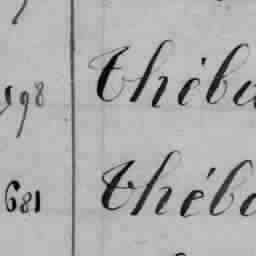 598 Théba
681 Théba